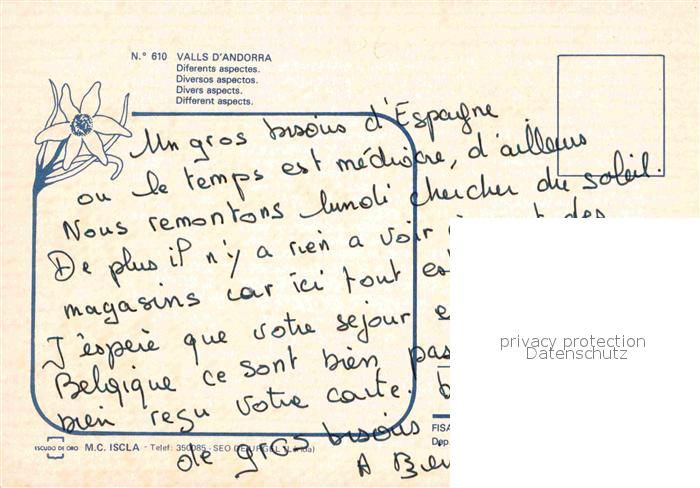 N.° 610 VALLS D'ANDORRA
Diferents aspectes.
Diversos aspectos.
Divers aspects.
Different aspects.
Un gros bisous d'Espagne
ou le temps est médiocre, d'ailleurs
Nous remontons lundi chercher du soleil.
De plus il n'y a rien a voir des
magasins car ici tout
J'espere que votre sejour
Belgique ce sont bien pas
bien reçu votre carte.
de gros bisous
A
privacy protection
Datenschutz
FISA
Dep.
ESCUDO DE ORO M.C. ISCLA - Telef: 350085 - SEO DE URGEL (Lérida)